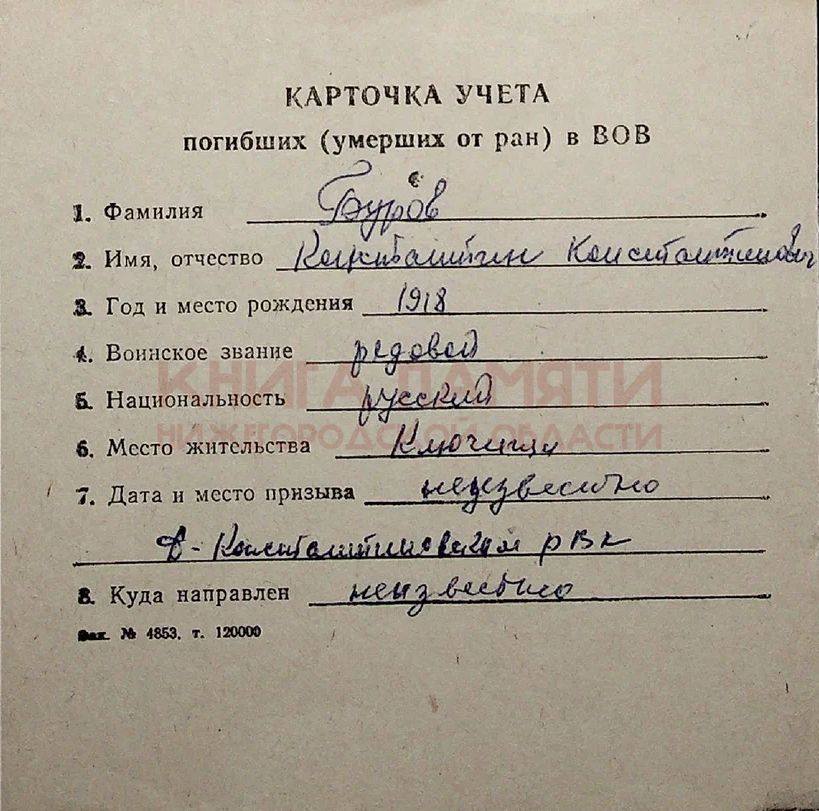 КАРТОЧКА УЧЕТА
погибших (умерших от ран) в ВОВ
1. Фамилия Буров
2. Имя, отчество Константин Константинович
3. Год и место рождения 1918
4. Воинское звание редовой
5. Национальность русский
КНИГА ПАМЯТИ
НИЖЕГОРОДСКОЙ ОБЛАСТИ
6. Место жительства Ключищи
7. Дата и место призыва неизвестно
Д-Константиновским рвк
8. Куда направлен неизвестно
Зак. № 4853, т. 120000